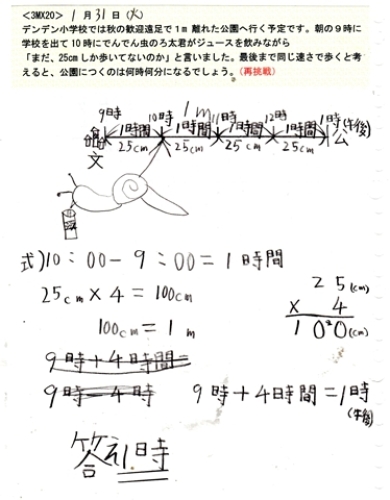 <3MX20> 1月31日(火)
デンデン小学校では秋の歓迎遠足で1m離れた公園へ行く予定です。朝の9時に
学校を出て10時にでんでん虫のろ太君がジュースを飲みながら
「まだ、25cmしか歩いてないのか」と言いました。最後まで同じ速さで歩くと考
えると、公園につくのは何時何分になるでしょう。(再挑戦)
1m
9時 10時 11時 12時 1時(午後)
1時間 1時間 1時間 1時間
文 25cm 25cm 25cm 25cm 公
式)10:00-9:00=1時間
25cm×4=100cm
100cm=1m
25(cm)
× 4
100(cm)
9時+4時間=
9時-4時 9時+4時間=1時
(午後)
答え1時